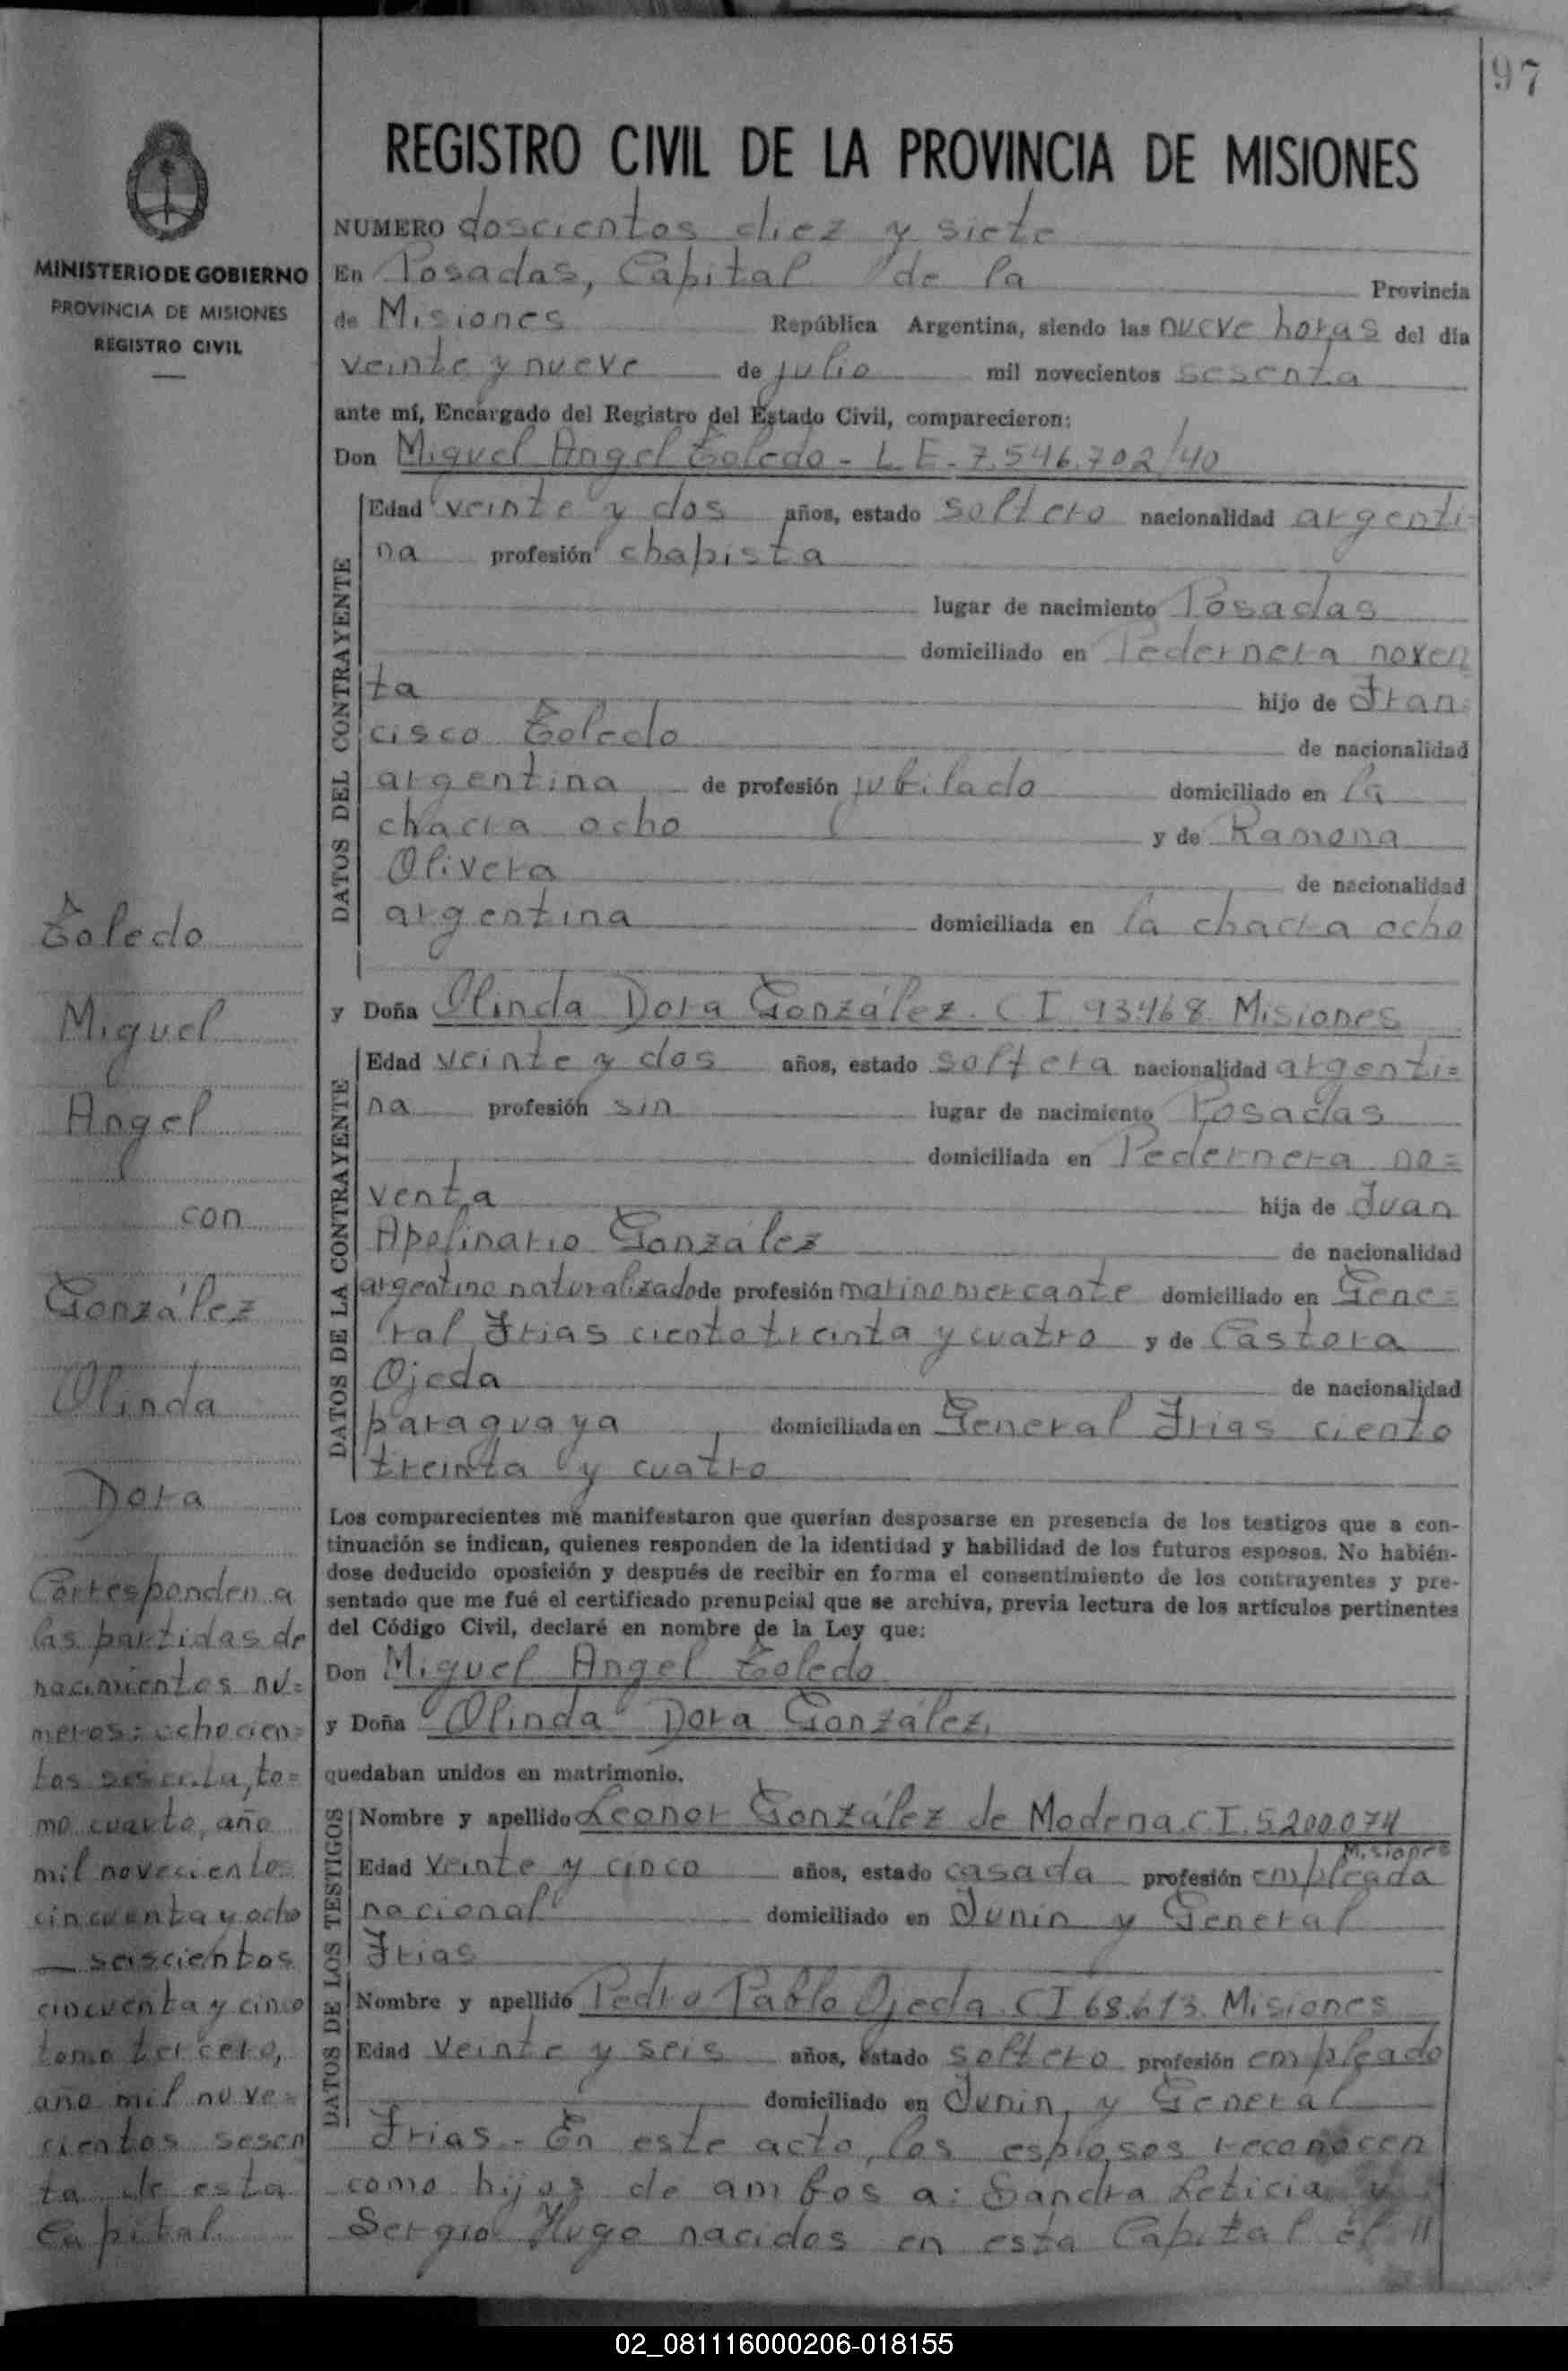 97
REGISTRO CIVIL DE LA PROVINCIA DE MISIONES
MINISTERIO DE GOBIERNO
PROVINCIA DE MISIONES
REGISTRO CIVIL
NUMERO doscientos diez y siete
En Posadas, Capital de la Provincia
de Misiones República Argentina, siendo las nueve horas del día
veinte y nueve de julio mil novecientos sesenta
ante mí, Encargado del Registro del Estado Civil, comparecieron:
Don Miguel Angel Toledo - L E - 7.546.702/40
DATOS DEL CONTRAYENTE
Edad veinte y dos años, estado soltero nacionalidad argenti-
na profesión chapista
lugar de nacimiento Posadas
domiciliado en Pedernera noven
ta hijo de Fran
cisco Toledo de nacionalidad
argentina de profesión jubilado domiciliado en la
chacra ocho y de Ramona
Olivera de nacionalidad
argentina domiciliada en la chacra ocho
y Doña Olinda Dora González. C I 93468 Misiones
DATOS DE LA CONTRAYENTE
Edad veinte y dos años, estado soltera nacionalidad argenti=
na profesión sin lugar de nacimiento Posadas
domiciliada en Pedernera no=
venta hija de Juan
Apolinario González de nacionalidad
argentino naturalizado de profesión marino mercante domiciliado en Gene=
ral Frias ciento treinta y cuatro y de Castora
Ojeda de nacionalidad
paraguaya domiciliada en General Frias ciento
treinta y cuatro
Los comparecientes me manifestaron que querían desposarse en presencia de los testigos que a con-
tinuación se indican, quienes responden de la identidad y habilidad de los futuros esposos. No habién-
dose deducido oposición y después de recibir en forma el consentimiento de los contrayentes y pre-
sentado que me fué el certificado prenupcial que se archiva, previa lectura de los artículos pertinentes
del Código Civil, declaré en nombre de la Ley que:
Don Miguel Angel Toledo
y Doña Olinda Dora González.
quedaban unidos en matrimonio.
DATOS DE LOS TESTIGOS
Nombre y apellido Leonor González de Modena. C. I. 5200.074
Misiones
Edad veinte y cinco años, estado casada profesión empleada
nacional domiciliado en Junin y General
Frias
Nombre y apellido Pedro Pablo Ojeda. C I 68.613. Misiones
Edad veinte y seis años, estado soltero profesión empleado
domiciliado en Junin, y General
Frias. - En este acto, los esposos reconocen
como hijos de ambos a: Sandra Leticia y
Sergio Hugo nacidos en esta Capital el 11
Toledo
Miguel
Angel
con
González
Olinda
Dora
Corresponden a
las partidas de
nacimientos nú=
meros: ochocien=
tos sesenta, to=
mo cuarto, año
mil novecientos
cincuenta y ocho
— seiscientos
cincuenta y cinco
tomo tercero,
año mil nove=
cientos sesen
ta de esta
Capital.
02_081116000206-018155